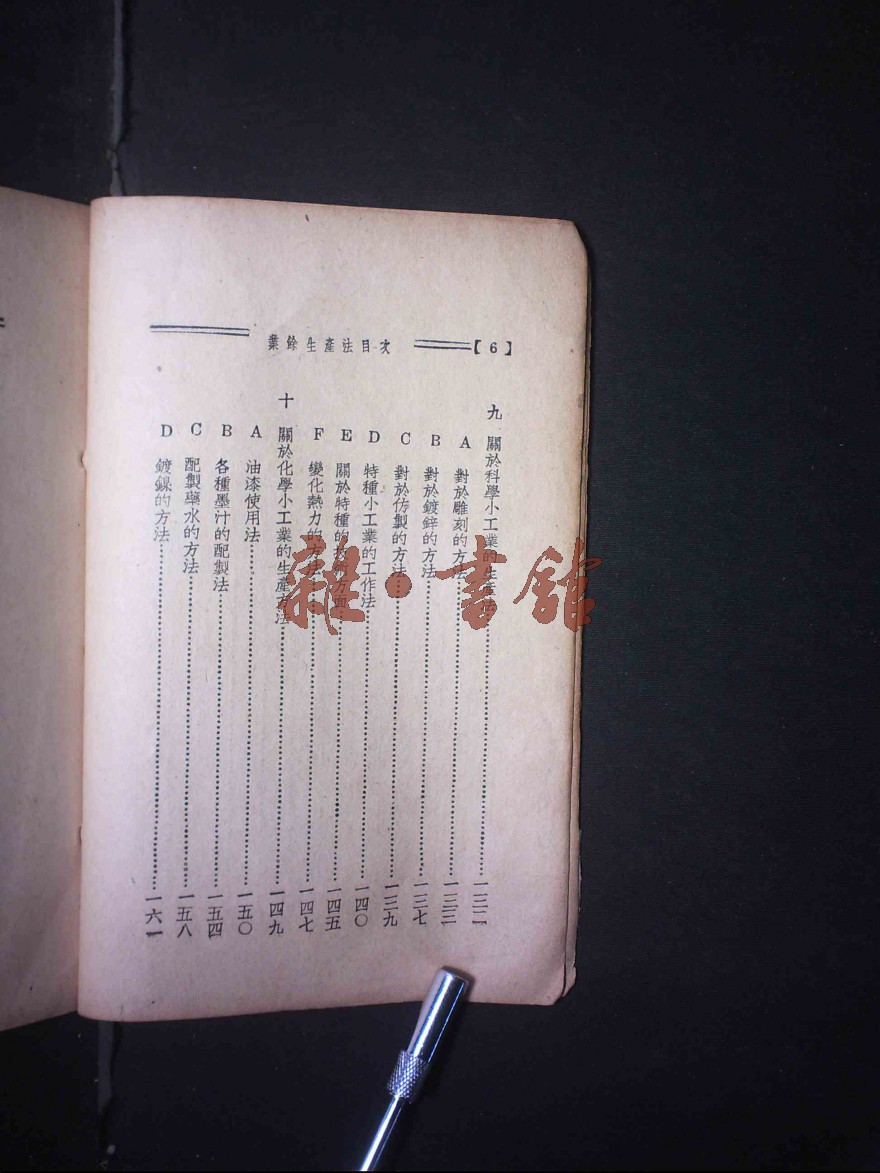 業餘生產法目次 【6】
九 關於科學小工業的生產法……一三二
A 對於雕刻的方法……一三三
B 對於鍍鋅的方法……一三七
C 對於仿製的方法……一三九
D 特種小工業的工作法……一四〇
E 關於特種的技術方面……一四五
F 變化熱力的方法……一四七
十 關於化學小工業的生產方法……一四九
A 油漆使用法……一五〇
B 各種墨汁的配製法……一五四
C 配製藥水的方法……一五八
D 鍍鎳的方法……一六一
雜·書館